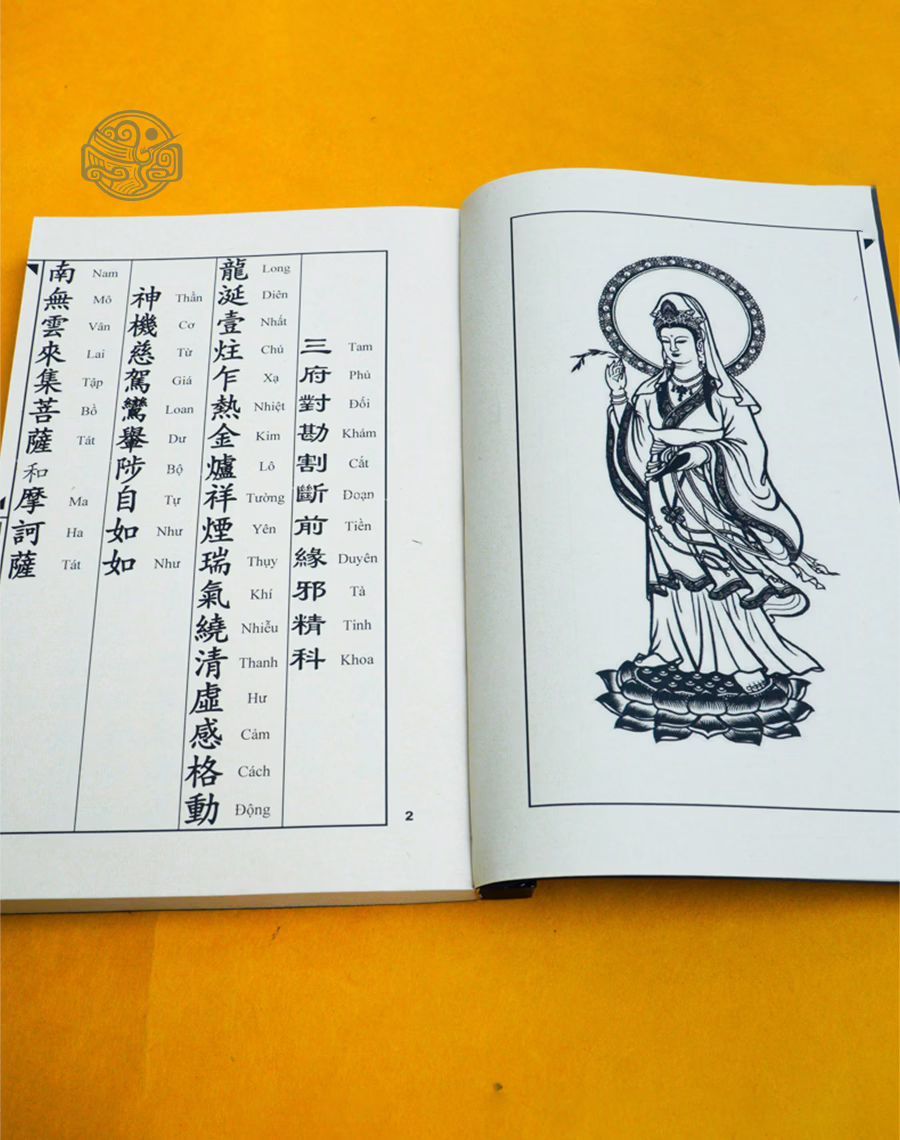 三府對勘割斷前緣邪精科
Tam Phủ Đối Khám Cắt Đoạn Tiền Duyên Tà Tinh Khoa
龍涎壹炷乍熱金爐祥煙瑞氣繞清虛感格動
Long Diên Nhất Chú Xạ Nhiệt Kim Lô Tường Yên Thụy Khí Nhiễu Thanh Hư Cảm Cách Động
神機慈駕鸞舉陟自如如
Thần Cơ Từ Giá Loan Dư Bộ Tự Như Như
南無雲來集菩薩和摩訶薩
Nam Mô Vân Lai Tập Bồ Tát Ma Ha Tát
2